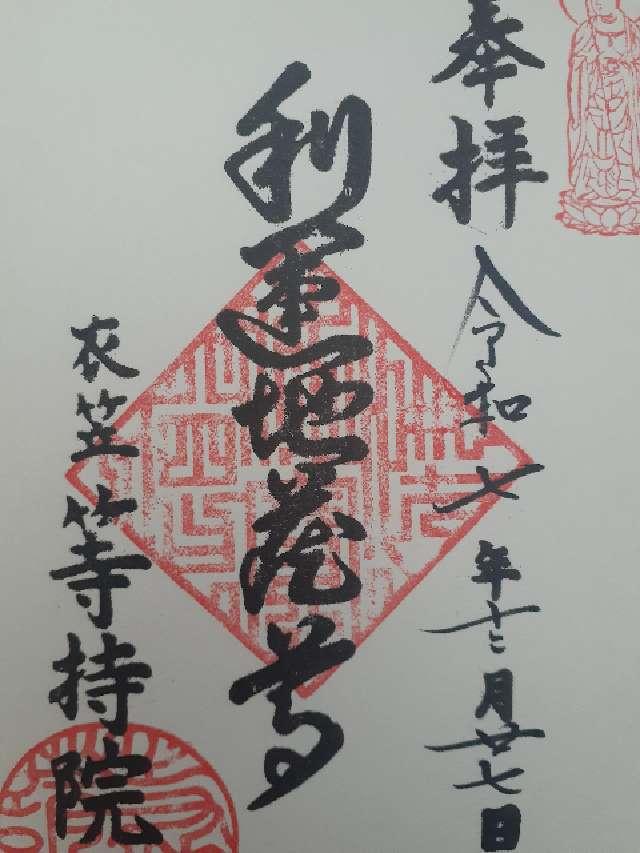 奉拝
令和七年十二月廿七日
利運地蔵尊
衣笠等持院